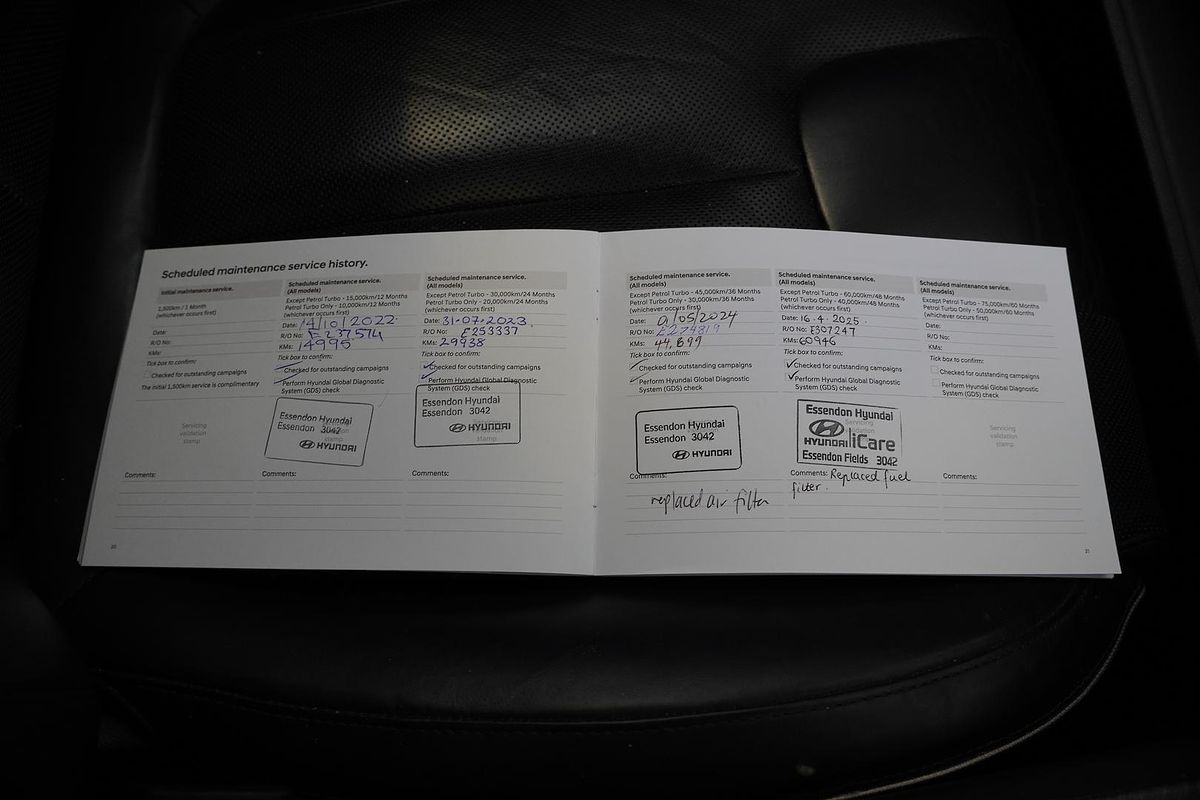 Scheduled maintenance service history.
Initial maintenance service.
1,500km / 1 Month
(whichever occurs first)
Date:
R/O No:
KMs:
Tick box to confirm:
Checked for outstanding campaigns
The initial 1,500km service is complimentary
Servicing
validation
stamp
Comments:
20
Scheduled maintenance service.
(All models)
Except Petrol Turbo - 15,000km/12 Months
Petrol Turbo Only - 10,000km/12 Months
(whichever occurs first)
Date: 14/10/2022
R/O No: E237574
KMs: 14995
Tick box to confirm:
Checked for outstanding campaigns
Perform Hyundai Global Diagnostic
System (GDS) check
Essendon Hyundai
Essendon 3042
HYUNDAI
stamp
Comments:
Scheduled maintenance service.
(All models)
Except Petrol Turbo - 30,000km/24 Months
Petrol Turbo Only - 20,000km/24 Months
(whichever occurs first)
Date: 31-07-2023
R/O No: E253337
KMs: 29938
Tick box to confirm:
Checked for outstanding campaigns
Perform Hyundai Global Diagnostic
System (GDS) check
Essendon Hyundai
Essendon 3042
HYUNDAI
stamp
Comments:
Scheduled maintenance service.
(All models)
Except Petrol Turbo - 45,000km/36 Months
Petrol Turbo Only - 30,000km/36 Months
(whichever occurs first)
Date: 01/05/2024
R/O No:
KMs: 44,899
Tick box to confirm:
Checked for outstanding campaigns
Perform Hyundai Global Diagnostic
System (GDS) check
Essendon Hyundai
Essendon 3042
HYUNDAI
Comments:
replaced air filter
Scheduled maintenance service.
(All models)
Except Petrol Turbo - 60,000km/48 Months
Petrol Turbo Only - 40,000km/48 Months
(whichever occurs first)
Date: 16.4.2025.
R/O No: E307247
KMs: 60946
Tick box to confirm:
Checked for outstanding campaigns
Perform Hyundai Global Diagnostic
System (GDS) check
Essendon Hyundai
Servicing
HYUNDAI iCare
Essendon Fields 3042
Comments: Replaced fuel
filter.
Scheduled maintenance service.
(All models)
Except Petrol Turbo - 75,000km/60 Months
Petrol Turbo Only - 50,000km/60 Months
(whichever occurs first)
Date:
R/O No:
KMs:
Tick box to confirm:
Checked for outstanding campaigns
Perform Hyundai Global Diagnostic
System (GDS) check
Servicing
validation
stamp
Comments:
21